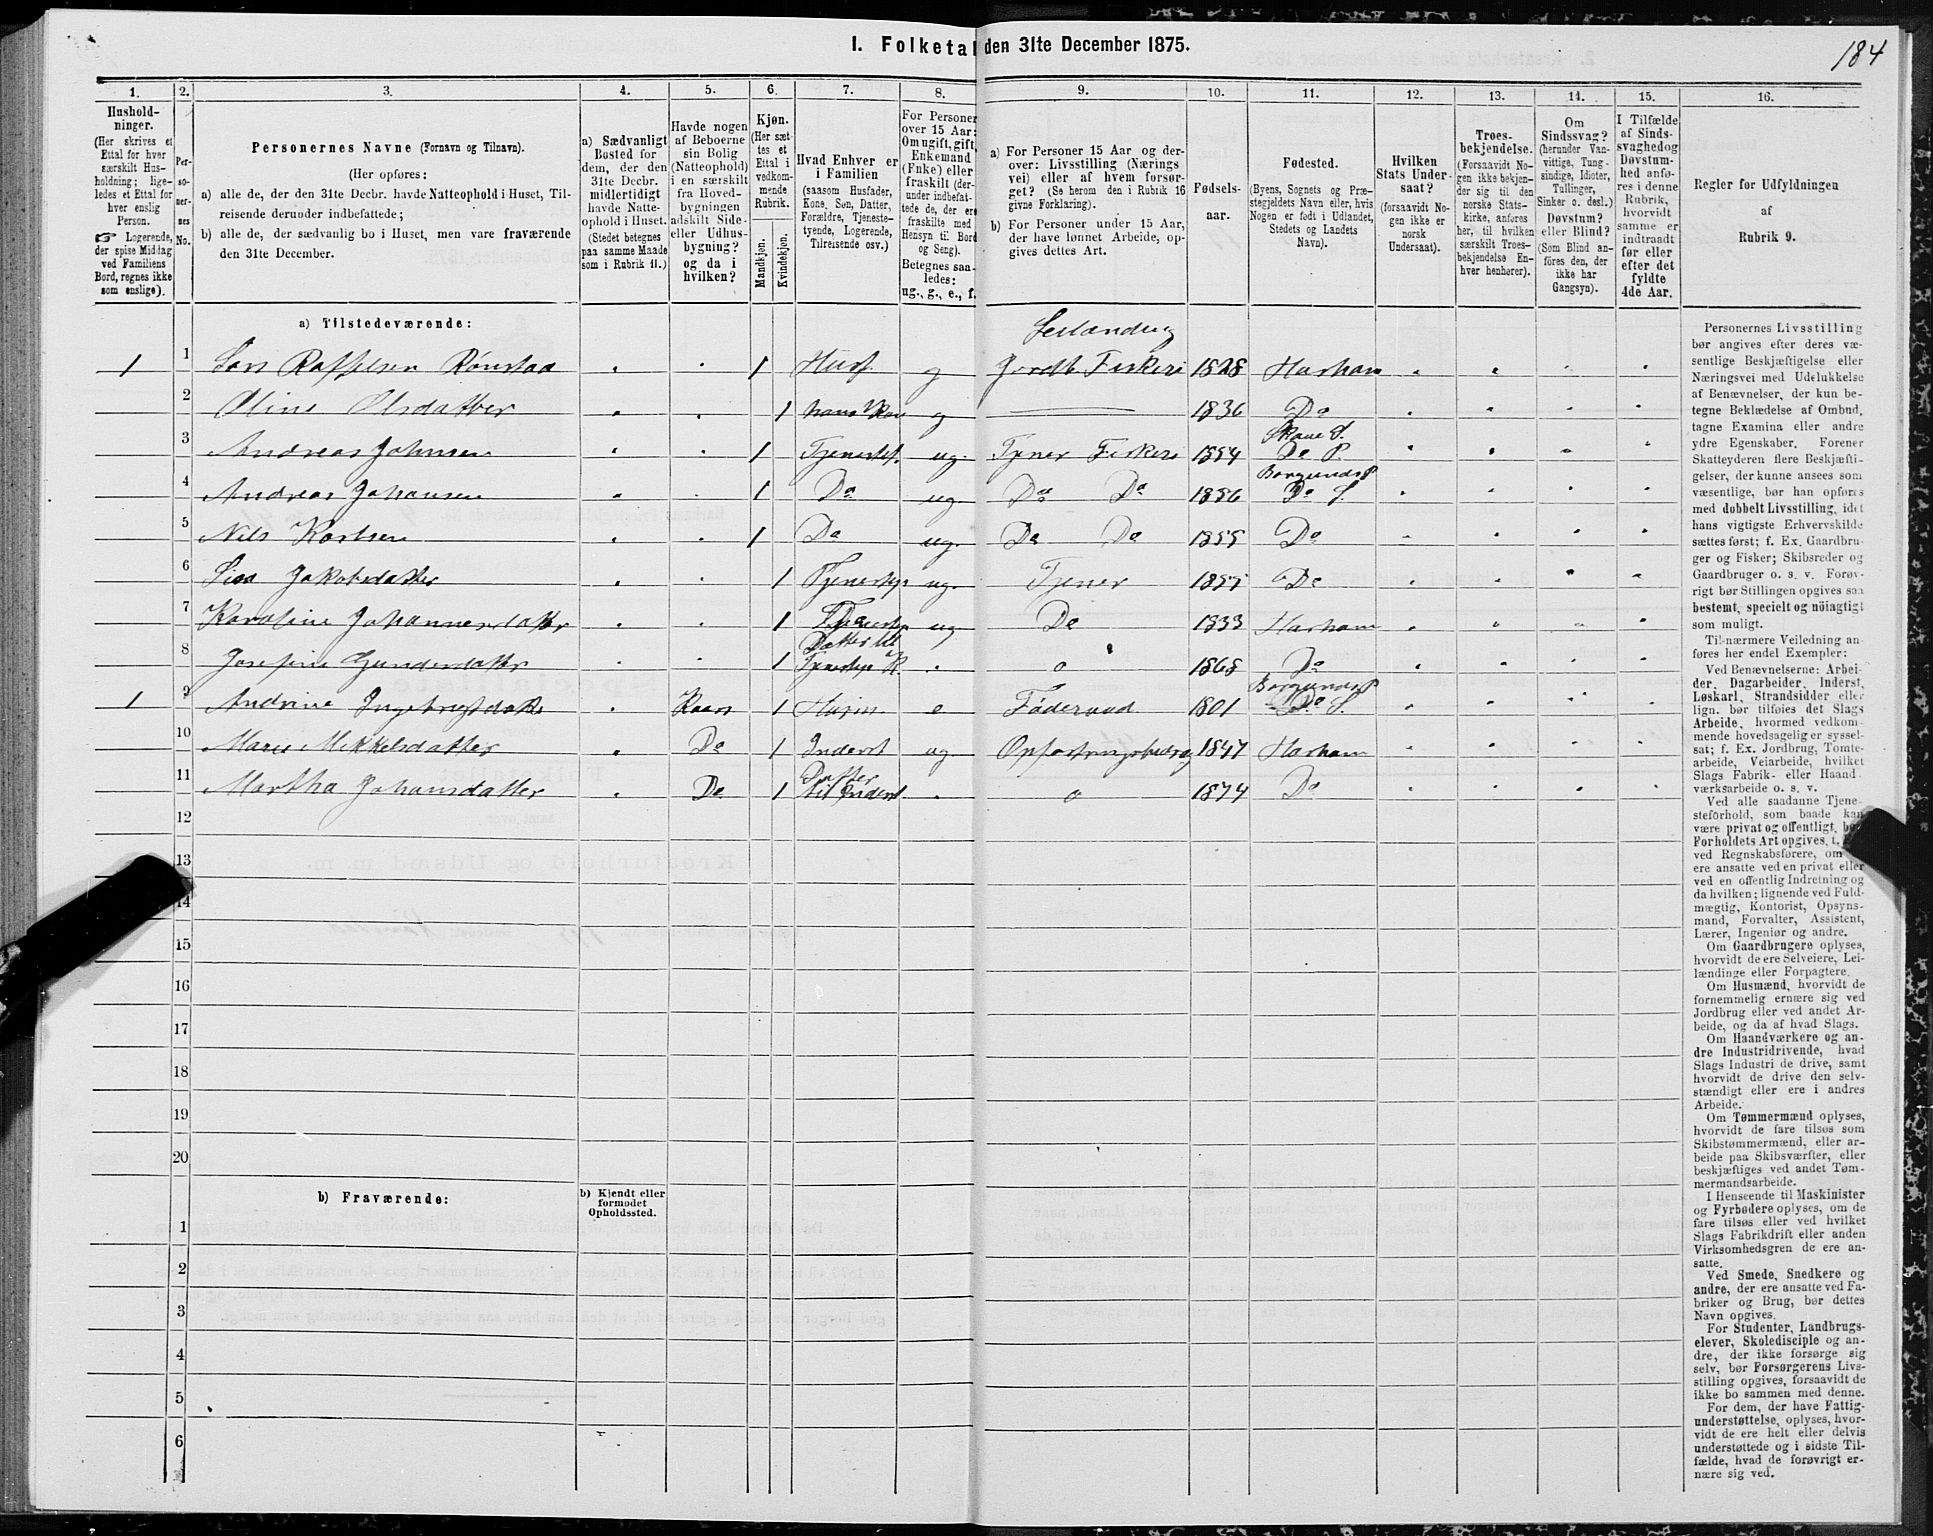 I. Folketal den 31te December 1875.
184
1. 2. 3. 4. 5. 6. 7. 8. 9. 10. 11. 12. 13. 14. 15. 16.
Hushold-
ninger.
(Her skrives et
Ettal for hver
særskilt Hus-
holdning; lige-
ledes et Ettal for
hver enslig
Person.
☞ Logerende,
der spise Middag
ved Familiens
Bord, regnes ikke
som enslige).
Per-
so-
ner-
nes
No.
Personernes Navne (Fornavn og Tilnavn).
(Her opføres:
a) alle de, der den 31te Decbr. havde Natteophold i Huset, Til-
reisende derunder indbefattede;
b) alle de, der sædvanlig bo i Huset, men vare fraværende
den 31te December.
a) Sædvanligt
Bosted for
dem, der den
31te Decbr.
midlertidigt
havde Natte-
ophold i Huset.
(Stedet betegnes
paa samme Maade
som i Rubrik 11.)
Havde nogen
af Beboerne
sin Bolig
(Natteophold)
i en særskilt
fra Hoved-
bygningen
adskilt Side-
eller Udhus-
bygning?
og da i
hvilken?
Kjøn.
(Her sæt-
tes et
Ettal i
vedkom-
mende
Rubrik.
Mandkjøn.
Kvindekjøn.
Hvad Enhver er
i Familien
(saasom Husfader,
Kone, Søn, Datter,
Forældre, Tjeneste-
tyende, Logerende,
Tilreisende osv.)
For Personer
over 15 Aar:
Om ugift, gift,
Enkemand
(Enke) eller
fraskilt (der-
under indbefat-
tede de, der ere
fraskilte med
Hensyn til Bord
og Seng).
Betegnes saa-
ledes:
ug., g., e., f.
a) For Personer 15 Aar og der-
over: Livsstilling (Nærings-
vei) eller af hvem forsør-
get? (Se herom den i Rubrik 16
givne Forklaring).
b) For Personer under 15 Aar,
der have lønnet Arbeide, op-
gives dettes Art.
Fødsels-
aar.
Fødested.
(Byens, Sognets og Præ-
stegjeldets Navn eller, hvis
Nogen er født i Udlandet,
Stedets og Landets
Navn).
Hvilken
Stats Under-
saat?
(forsaavidt No-
gen ikke er
norsk
Undersaat).
Troes-
bekjendelse.
(Forsaavidt No-
gen ikke bekjen-
der sig til den
norske Stats-
kirke, anføres
her, til hvilken
særskilt Troes-
bekjendelse En-
hver henhører).
Om
Sindssvag?
(herunder Van-
vittige, Tung-
sindige, Idioter,
Tullinger,
Sinker o. desl.)
Døvstum?
eller Blind?
(Som Blind an-
føres den, der
ikke har
Gangsyn).
I Tilfælde
af Sinds-
svaghed og
Døvstum-
hed anfø-
res i denne
Rubrik,
hvorvidt
samme er
indtraadt
før eller
efter det
fyldte
4de Aar.
Regler for Udfyldningen
af
Rubrik 9.
a) Tilstedeværende:
1 1 Lars Raffelsen Rønstad 1 Husf. g Selænding Jordb Fiskeri 1828 Harham
2 Oline Olsdatter 1 hans Kone g 1836 Do
3 Andreas Johnsen 1 Tjenestef. ug. Tjener Fiskeri 1854 Skaue S. Do P.
4 Andreas Johansen 1 Do ug Do Do 1856 Borgunds P Do S.
5 Nils Karlsen 1 Do ug. Do Do 1855 Do
6 Lisa Jakobsdatter 1 Tjenestep ug. Tjener 1855 Do
7 Karoline Johannesdatter 1 Tjenestep ug Do 1833 Harham
8 Josefine Gunderdatter 1 Datter til Tjenestep K. o 1868 Do
1 9 Andrine Ingebrigtdatr Kaars 1 Husm e Føderaad 1801 Borgunds P Do S.
10 Marie Mikkelsdatter Do 1 Inderst ug Opfostringsbidrag 1847 Harham
11 Martha Johansdatter Do 1 Datter til Inderst o 1874 Do
12
13
14
15
16
17
18
19
20
b) Fraværende:
b) Kjendt eller
formodet
Opholdssted.
1
2
3
4
5
6
Personernes Livsstilling
bør angives efter deres væ-
sentlige Beskjæftigelse eller
Næringsvei med Udelukkelse
af Benævnelser, der kun be-
tegne Beklædelse af Ombud,
tagne Examina eller andre
ydre Egenskaber. Forener
Skatteyderen flere Beskjæfti-
gelser, der kunne ansees som
væsentlige, bør han opføres
med dobbelt Livsstilling, idet
hans vigtigste Erhvervskilde
sættes først; f. Ex. Gaardbru-
ger og Fisker; Skibsreder og
Gaardbruger o. s. v. Forøv-
rigt bør Stillingen opgives saa
bestemt, specielt og nöiagtigt
som muligt.
Til nærmere Veiledning an-
føres her endel Exempler:
Ved Benævnelserne: Arbei-
der, Dagarbeider, Inderst,
Løskarl, Strandsidder eller
lign. bør tilføies det Slags
Arbeide, hvormed vedkom-
mende hovedsagelig er syssel-
sat; f. Ex. Jordbrug, Tomte-
arbeide, Veiarbeide, hvilket
Slags Fabrik- eller Haand-
værksarbeide o. s. v.
Ved alle saadanne Tjene-
steforhold, som baade kan
være privat og offentligt, bør
Forholdets Art opgives, t.
ved Regnskabsførere, om
ere ansatte ved en privat eller
ved en offentlig Indretning og
da hvilken; lignende ved Fuld-
mægtig, Kontorist, Opsyns-
mand, Forvalter, Assistent,
Lærer, Ingeniør og andre.
Om Gaardbrugere oplyses,
hvorvidt de ere Selveiere, Lei-
lændinge eller Forpagtere.
Om Husmænd, hvorvidt de
fornemmelig ernære sig ved
Jordbrug eller ved andet Ar-
beide, og da af hvad Slags.
Om Haandværkere og an-
dre Industridrivende, hvad
Slags Industri de drive, samt
hvorvidt de drive den selv-
stændigt eller ere i andres
Arbeide.
Om Tømmermænd oplyses,
hvorvidt de fare tilsøs som
Skibstømmermænd, eller ar-
beide paa Skibsværfter, eller
beskjæftiges ved andet Tøm-
mermandsarbeide.
I Henseende til Maskinister
og Fyrbødere oplyses, om de
fare tilsøs eller ved hvilket
Slags Fabrikdrift eller anden
Virksomhedsgren de ere an-
satte.
Ved Smede, Snedkere og
andre, der ere ansatte ved Fa-
briker og Brug, bør dettes
Navn opgives.
For Studenter, Landbrugs-
elever, Skoledisciple og an-
dre, der ikke forsørge sig
selv, bør Forsørgerens Livs-
stilling opgives, forsaavidt de
ikke bo sammen med denne.
For dem, der have Fattig-
understøttelse, oplyses, hvor-
vidt de ere helt eller delvis
understøttede og i sidste Til-
fælde, hvad de forøvrigt er-
nære sig ved.